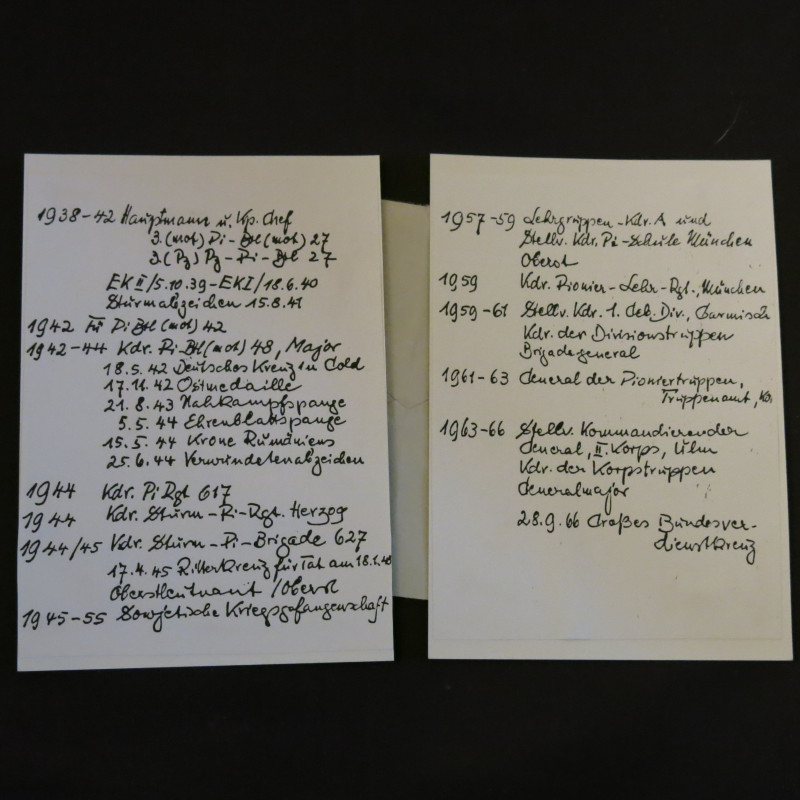 1938-42 Hauptmann u. Kp. Chef
3.(mot) Pi-Btl (mot) 27
3.(Pz) Pz-Pi-Btl 27
EK II/5.10.39-EKI/18.6.40
Sturmabzeichen 15.8.41
1942 Pi Btl (mot) 42
1942-44 Kdr. Pi-Btl (mot) 48, Major
18.5.42 Deutsches Kreuz in Gold
17.11.42 Ostmedaille
21.8.43 Nahkampfspange
5.5.44 Ehrenblattspange
15.5.44 Krone Rumäniens
25.6.44 Verwundetenabzeichen
1944 Kdr. Pi Rgt 617
1944 Kdr. Sturm-Pi-Rgt. Herzog
1944/45 Kdr. Sturm-Pi-Brigade 627
17.4.45 Ritterkreuz für Tat am
Oberstleutnant/Oberst
1945-55 Sowjetische Kriegsgefangenschaft
1957-59 Lehrgruppen-Kdr. A und
Stellv. Kdr. Pi-Schule München
Oberst
1959 Kdr. Pionier-Lehr-Rgt., München
1959-61 Stellv. Kdr. 1. Geb. Div., Garmisch
Kdr. der Divisionstruppen
Brigadegeneral
1961-63 General der Pioniertruppen,
Truppenamt,
1963-66 Stellv. Kommandierender
General, II. Korps, Ulm
Kdr. der Korpstruppen
Generalmajor
28.9.66 Großes Bundesver-
dienstkreuz